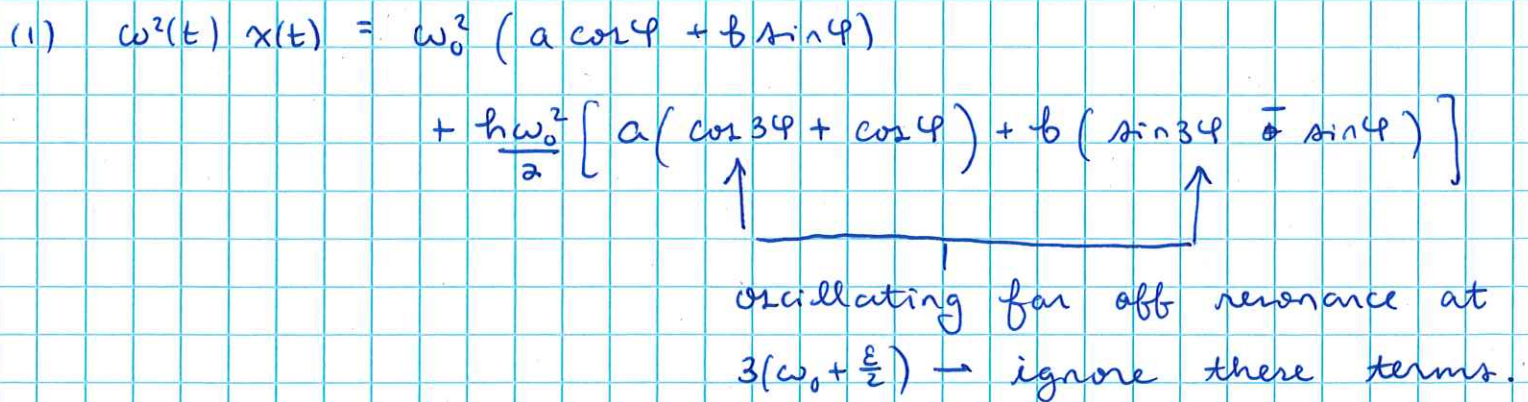 (1) ω²(t) x(t) = ω₀² (a cosφ + b sinφ)
+ hω₀²/2 [a(cos3φ + cosφ) + b(sin3φ - sinφ)]
oscillating far off resonance at
3(ω₀ + ε/2) → ignore these terms.